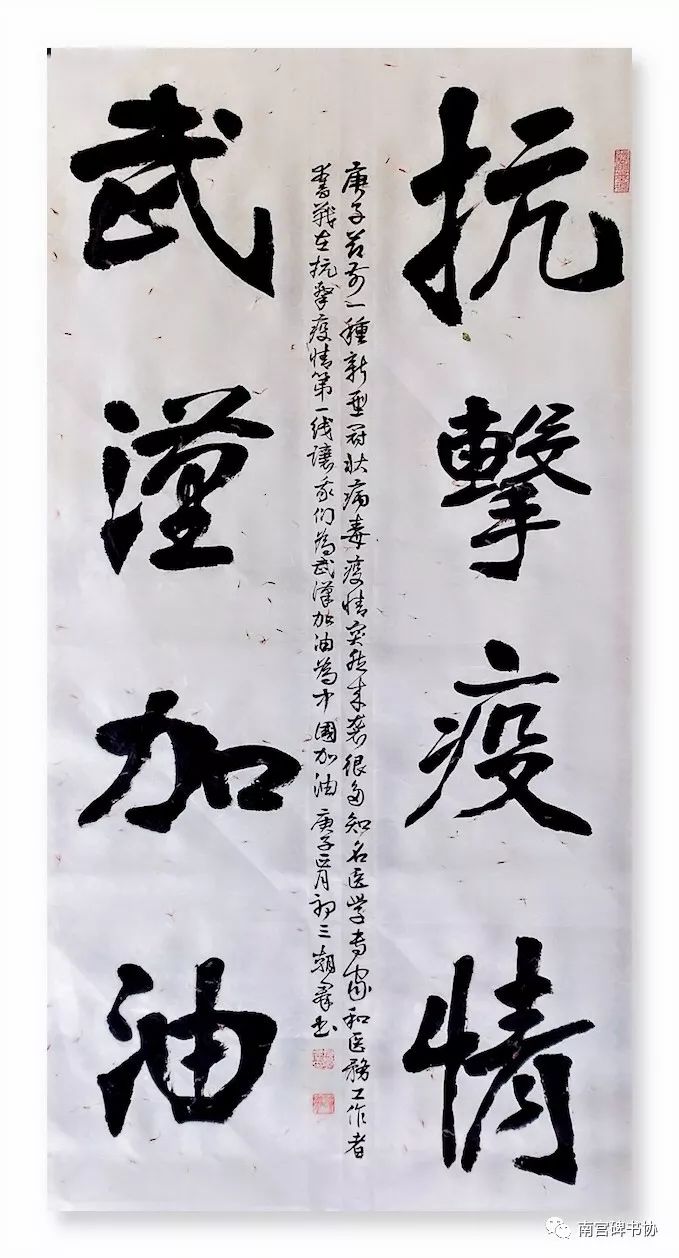 抗擊疫情
武漢加油
庚子前一種新型冠狀病毒疫情突然来袭很多知名医学专家和医務工作者
奮戰在抗擊疫情第一线讓我们為武漢加油為中國加油 庚子正月初三 朝君书
南宫碑书协